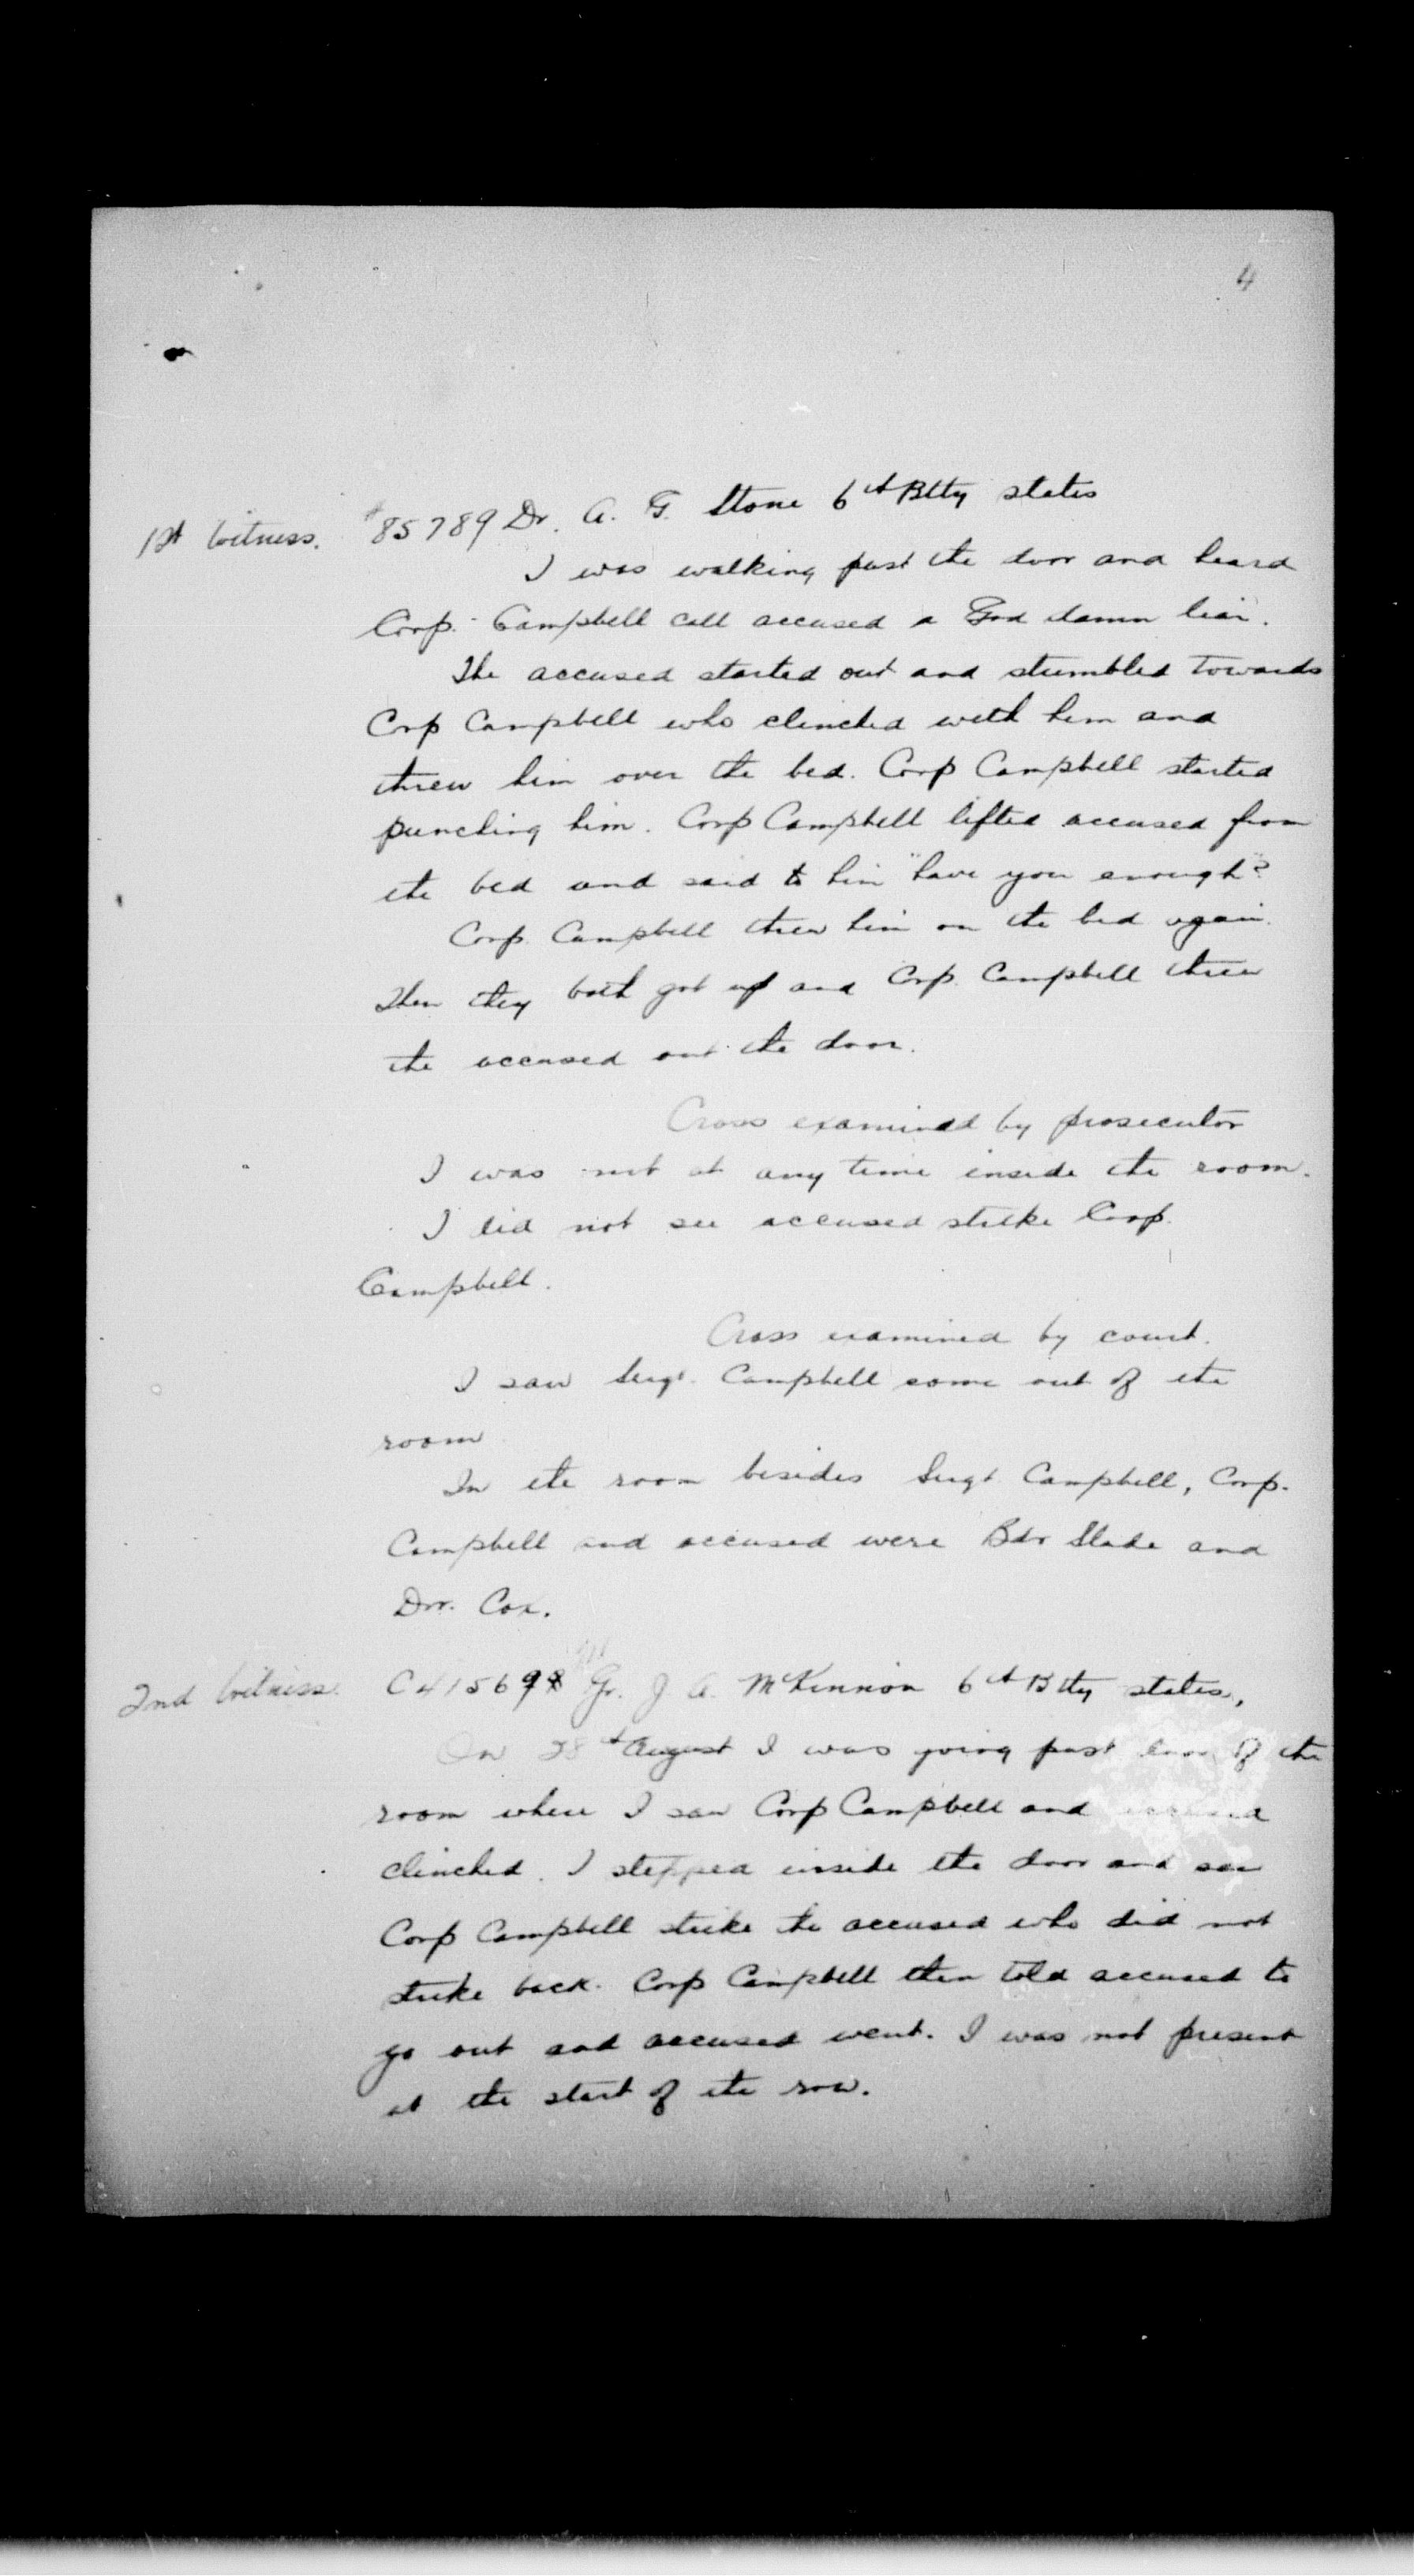 4
1st Witness. #85789 Dr. A. G. Stone 6th Btty states
I was walking past the door and heard
Corp. Campbell call accused a God damn liar.
The accused started out and stumbled towards
Corp Campbell who clinched with him and
threw him over the bed. Corp Campbell started
punching him. Corp Campbell lifted accused from
the bed and said to him "have you enough"?
Corp. Campbell threw him on the bed again.
Then they both got up and Corp. Campbell threw
the accused out the door.
Cross examined by prosecutor
I was not at any time inside the room.
I did not see accused strike Corp.
Campbell.
Cross examined by court.
I saw Sergt. Campbell come out of the
room
In the room besides Sergt Campbell, Corp.
Campbell and accused were Bdr Slade and
Dvr. Cox.
2nd Witness. Gr. J A. McKinnon 6th Btty states,
On 28th August I was going past door of the
room where I saw Corp Campbell and accused
clinched. I stepped inside the door and saw
Corp Campbell strike the accused who did not
strike back. Corp Campbell then told accused to
go out and accused went. I was not present
at the start of the row.